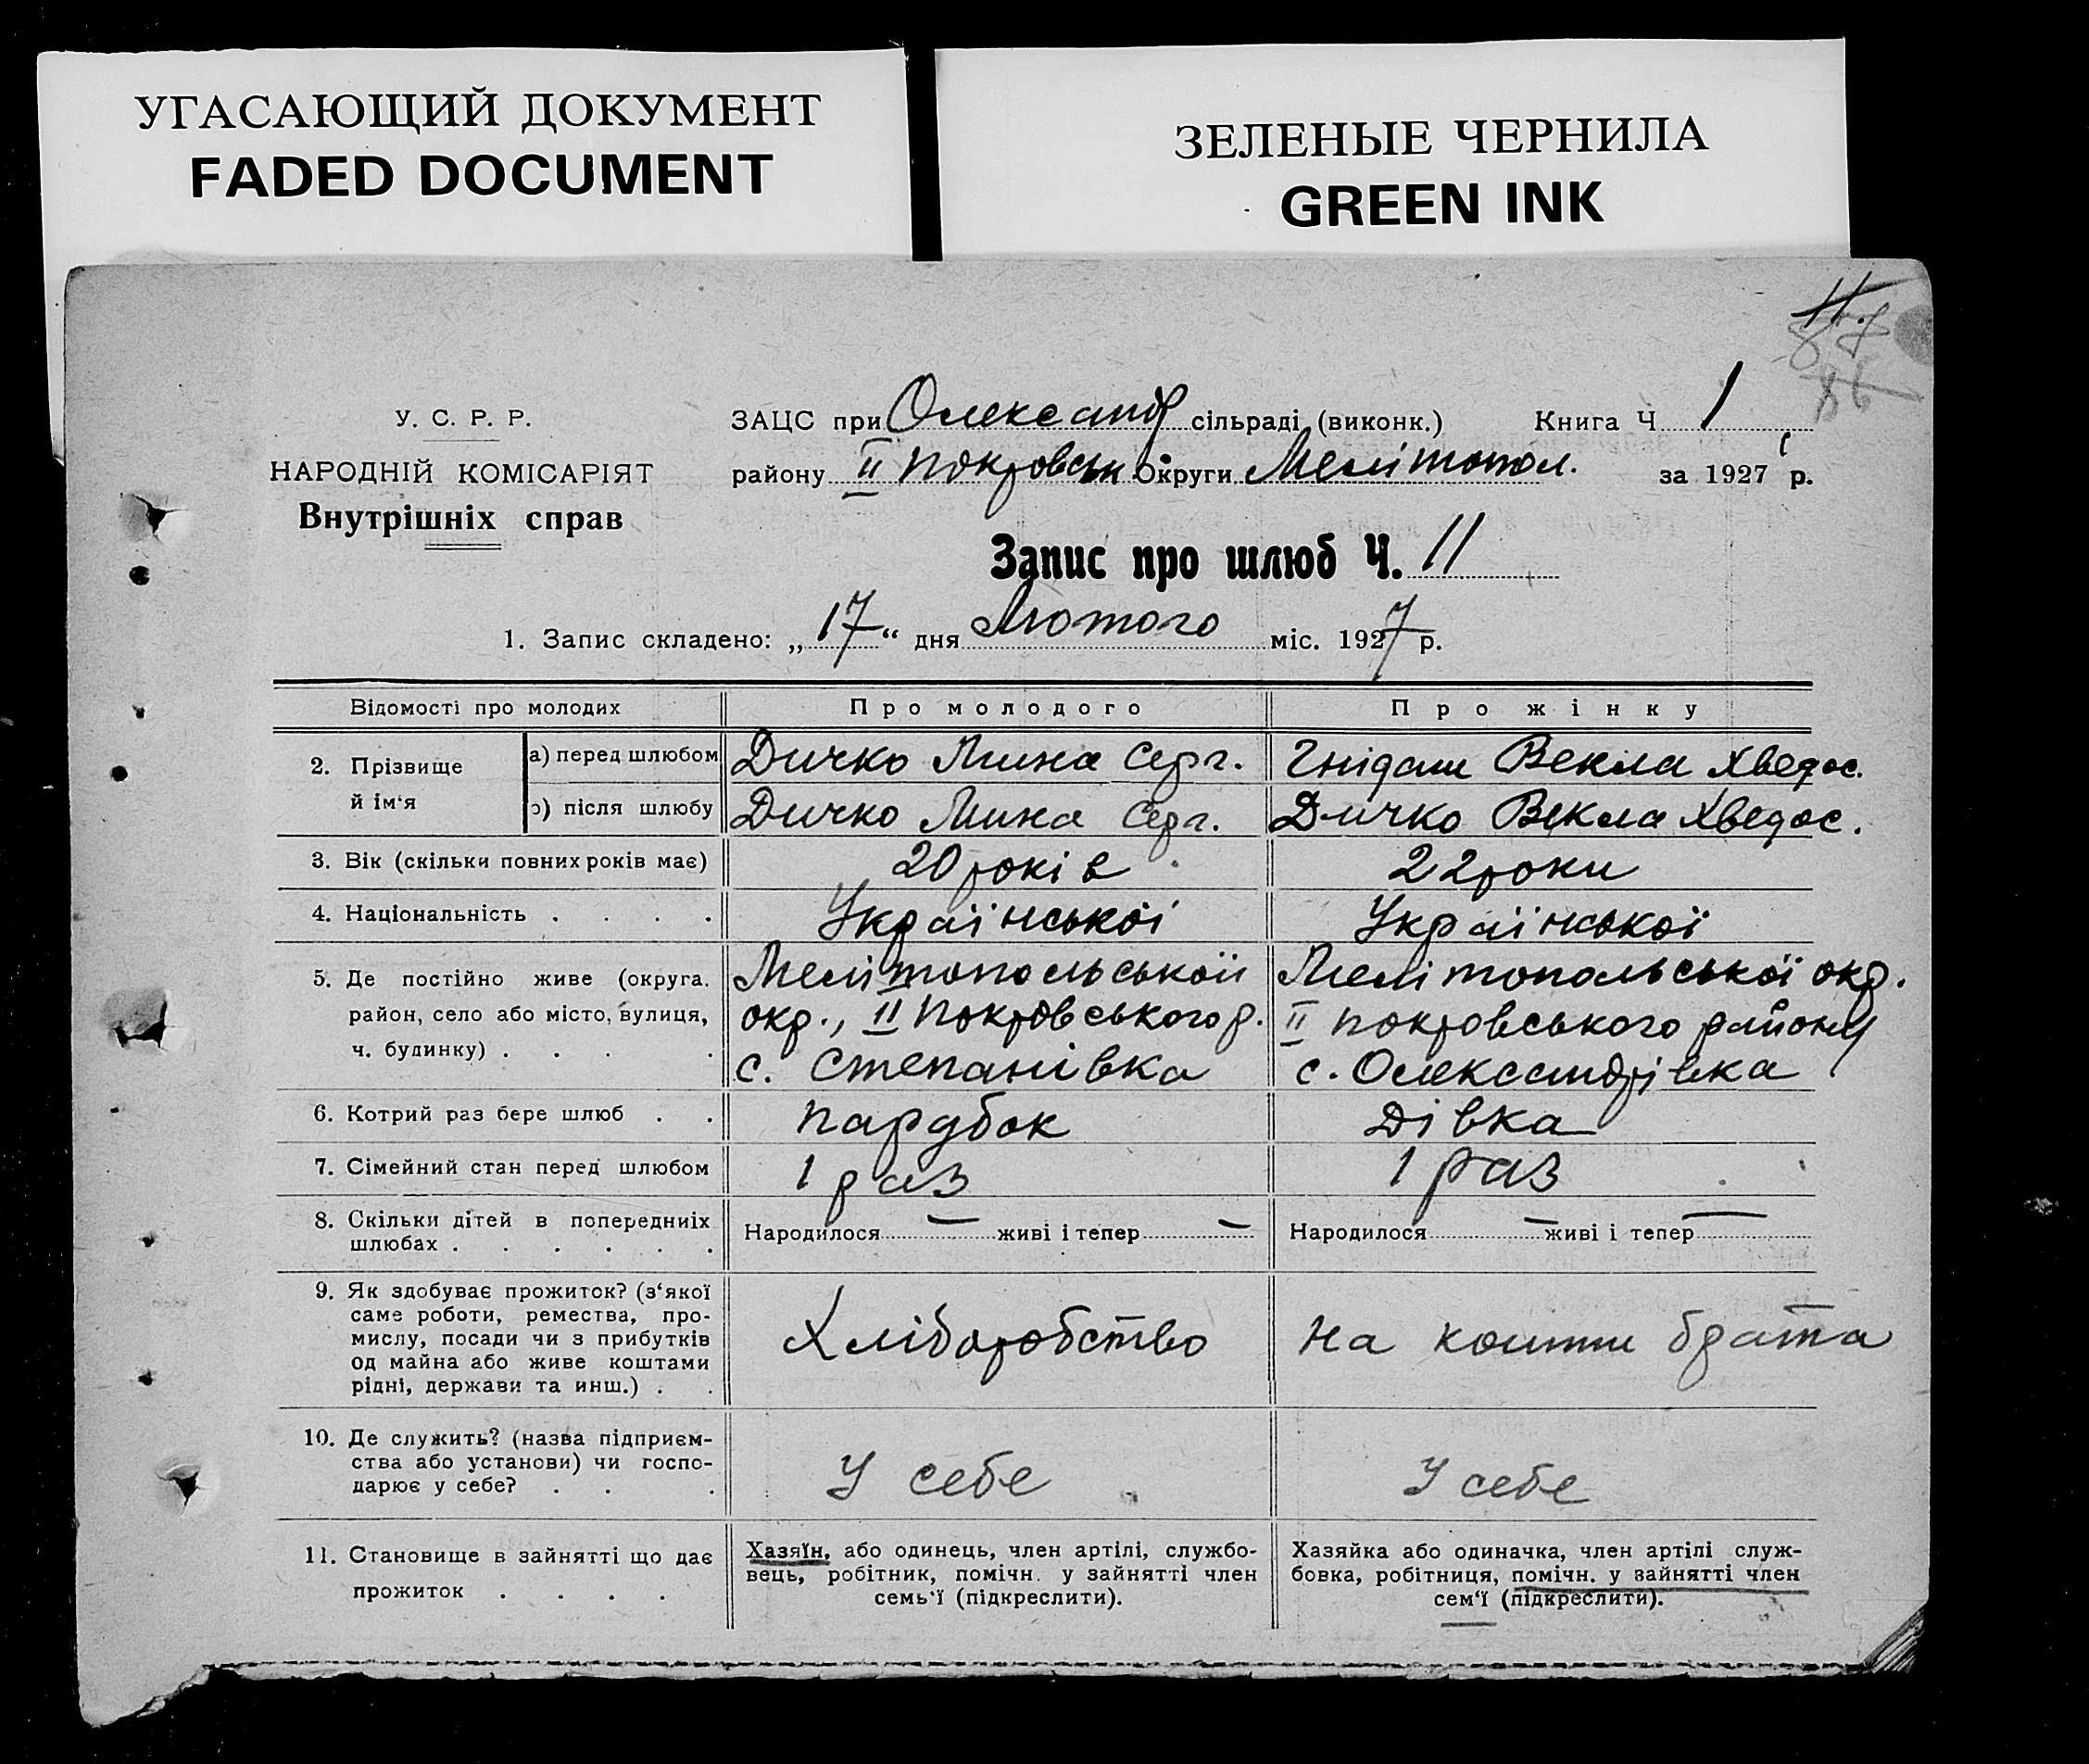 УГАСАЮЩИЙ ДОКУМЕНТ
FADED DOCUMENT
ЗЕЛЕНЫЕ ЧЕРНИЛА
GREEN INK
11.
87
86
У. С. Р. Р.
НАРОДНІЙ КОМІСАРІЯТ
Внутрішніх справ
ЗАЦС при Олександр сільраді (виконк.) Книга Ч 1
району II Покровськ Округи Мелітопол. за 1927 р.
Запис про шлюб Ч. 11
1. Запис складено: „17“ дня Лютого міс. 1927 р.
Відомості про молодих Про молодого Про жінку
2. Прізвище й ім‘я а) перед шлюбом Дичко Мина Серг. Гнідаш Векла Хведос.
б) після шлюбу Дичко Мина Серг. Дичко Векла Хведос.
3. Вік (скільки повних років має) 20 років 22 роки
4. Національність . . . . Української Української
5. Де постійно живе (округа. Мелітопольської Мелітопольської окр.
район, село або місто, вулиця, окр., II Покровського р. II Покровського району
ч. будинку) . . . . с. Степанівка с. Олександрівка
6. Котрий раз бере шлюб . . парубок Дівка
7. Сімейний стан перед шлюбом 1 раз 1 раз
8. Скільки дітей в попередниіх
шлюбах . . . . . . Народилося — живі і тепер — Народилося — живі і тепер —
9. Як здобуває прожиток? (з‘якої
саме роботи, ремества, про-
мислу, посади чи з прибутків
од майна або живе коштами
рідні, держави та инш.) . . Хліборобство На кошти брата
10. Де служить? (назва підприєм-
ства або установи) чи госпо-
дарює у себе? . . . У себе У себе
11. Становище в зайнятті що дає
прожиток . . . .
Хазяїн, або одинець, член артілі, службо-
вець, робітник, помічн. у зайнятті член
семь‘ї (підкреслити).
Хазяйка або одиначка, член артілі служ-
бовка, робітниця, помічн. у зайнятті член
сем‘ї (підкреслити).